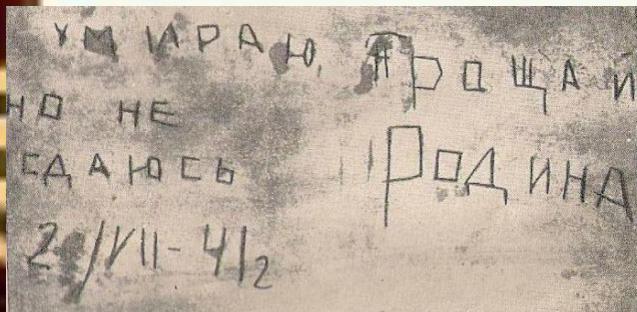 УМИРАЮ,
НО НЕ
СДАЮСЬ
Прощай
Родина
20/VII-41г